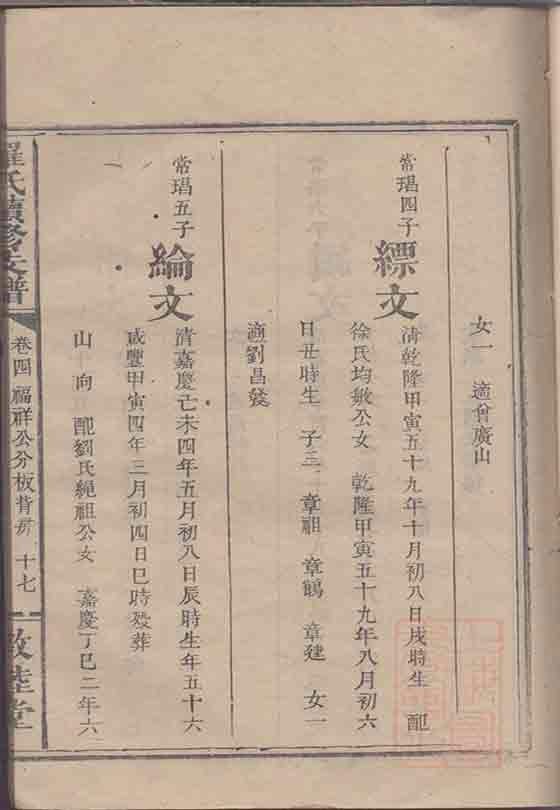 女一 適曾廣山
常瑒四子
縹文
淸乾隆甲寅五十九年十月初八日戌時生 配
徐氏均敏公女 乾隆甲寅五十九年八月初六
日丑時生 子三 章祖 章鶴 章建 女一
適劉昌發
常瑒五子
綸文
清嘉慶己未四年五月初八日辰時生年五十六
咸豐甲寅四年三月初四日巳時歿葬
山 向 配劉氏繩祖公女 嘉慶丁巳二年六
羅氏續修支譜
卷四 福祥公分板背房 十七
敦睦堂